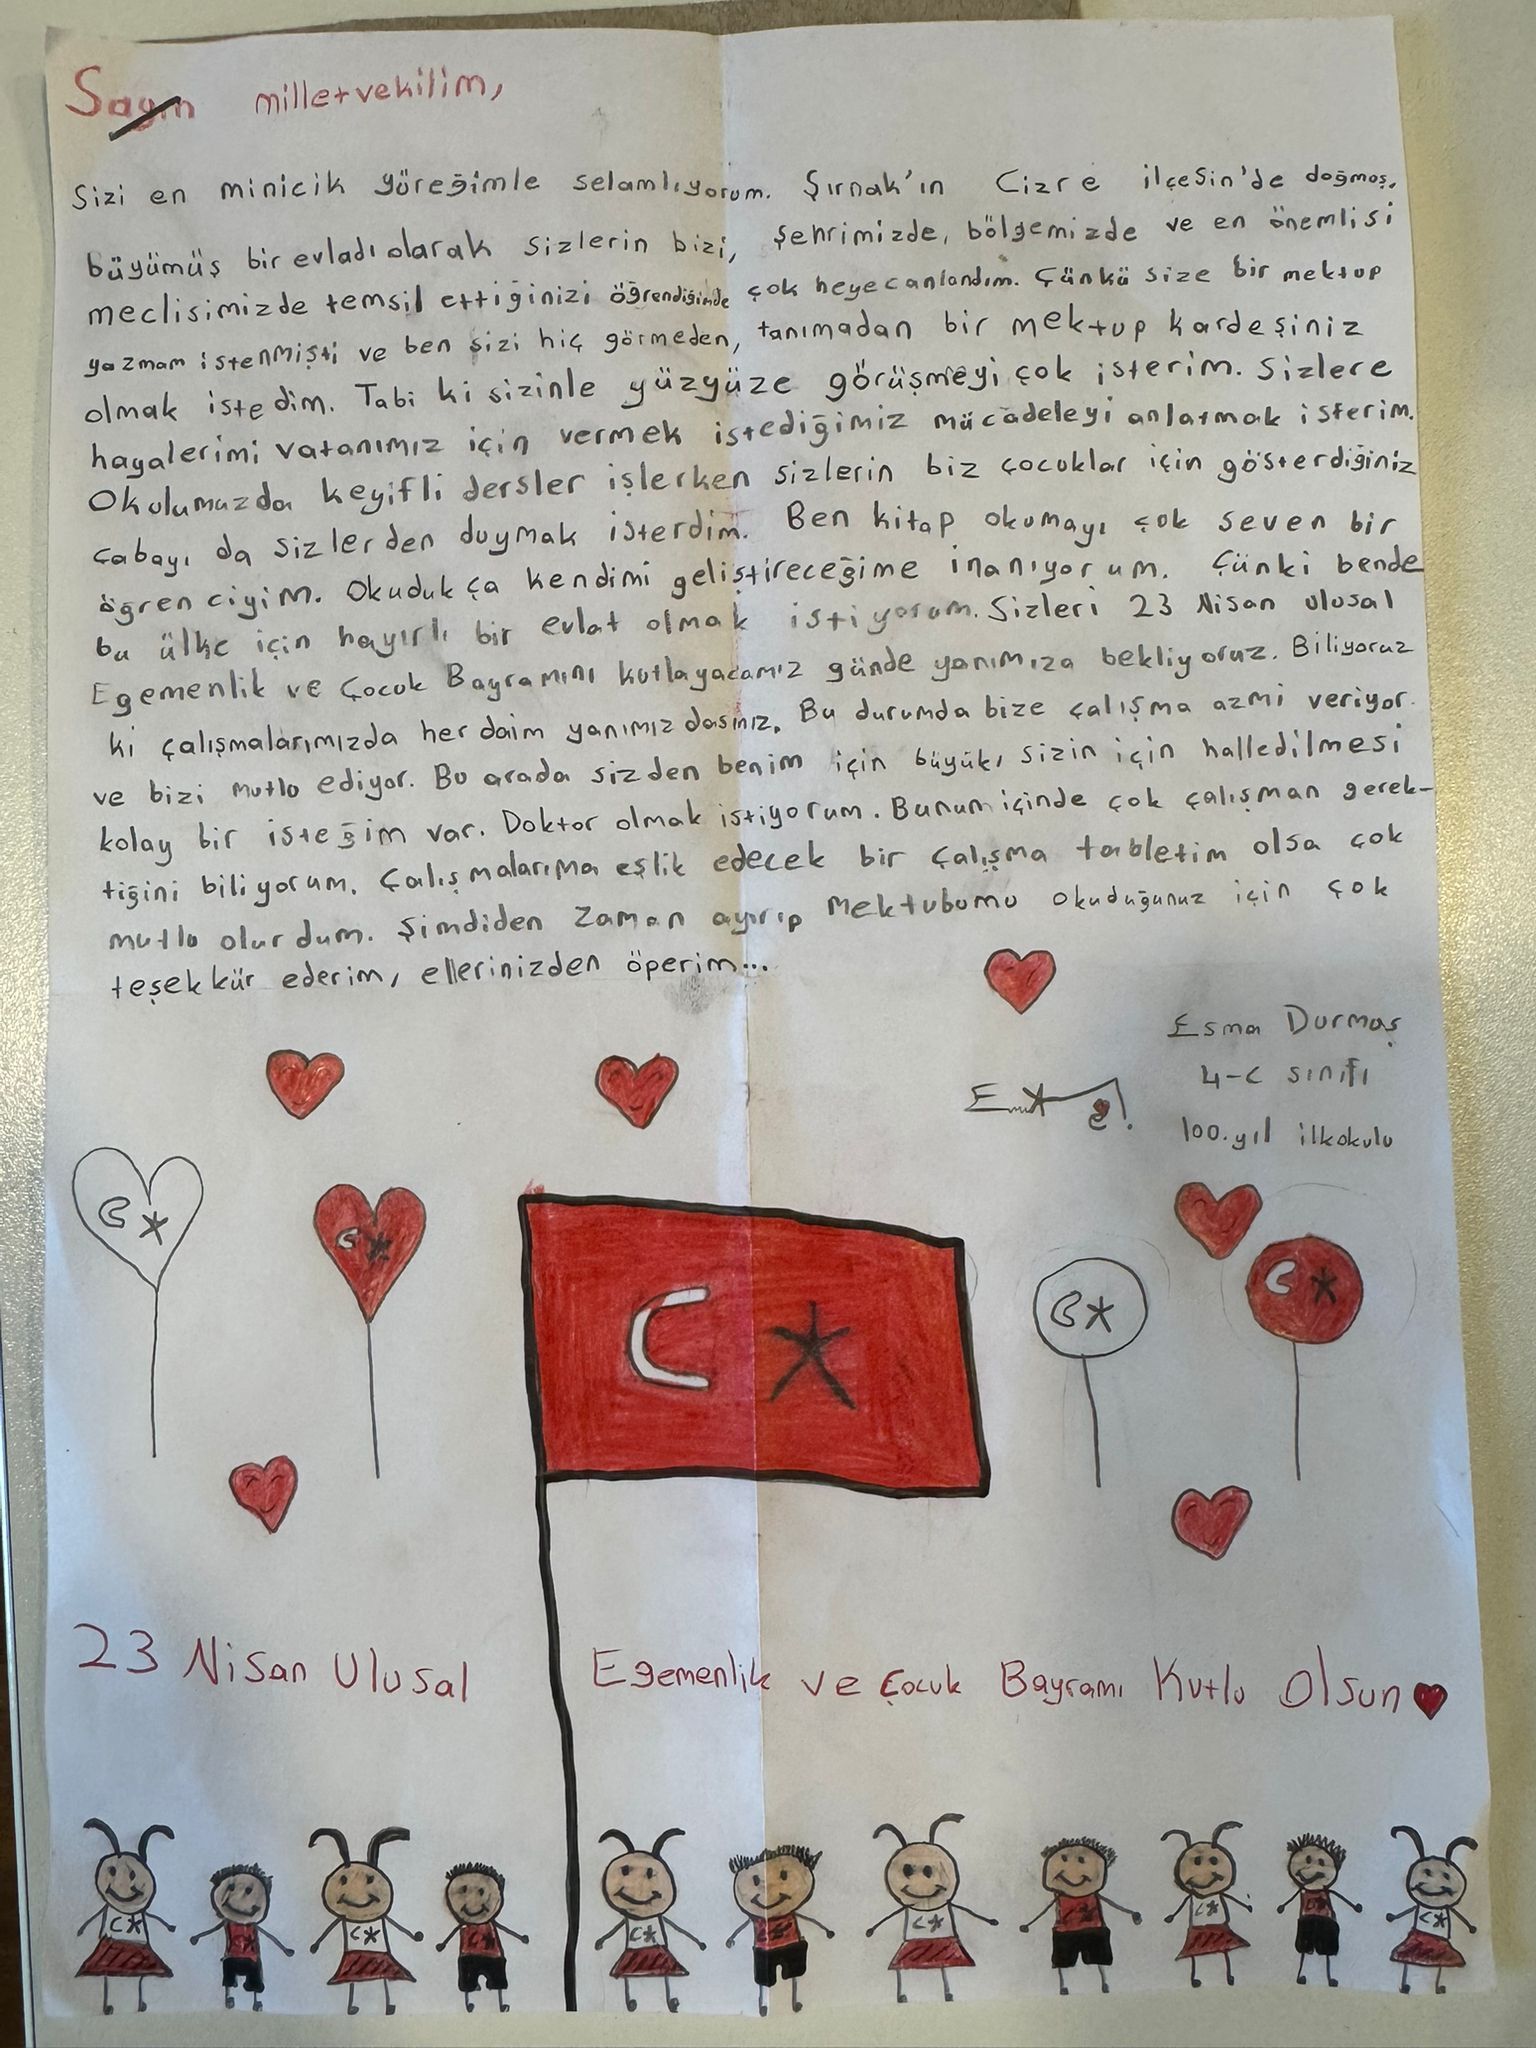 Sayın milletvekilim,
Sizi en minicik yüreğimle selamlıyorum. Şırnak'ın Cizre ilçesin'de doğmuş,
büyümüş bir evladı olarak sizlerin bizi, şehrimizde, bölgemizde ve en önemlisi
meclisimizde temsil ettiğinizi öğrendiğimde çok heyecanlandım. Çünkü size bir mektup
yazmam istenmişti ve ben sizi hiç görmeden, tanımadan bir mektup kardeşiniz
olmak istedim. Tabi ki sizinle yüzyüze görüşmeyi çok isterim. Sizlere
hayalerimi vatanımız için vermek istediğimiz mücadeleyi anlatmak isterim.
Okulumuzda keyifli dersler işlerken sizlerin biz çocuklar için gösterdiğiniz
çabayı da sizlerden duymak isterdim. Ben kitap okumayı çok seven bir
öğrenciyim. Okudukça kendimi geliştireceğime inanıyorum. Çünki bende
bu ülke için hayırlı bir evlat olmak istiyorum. Sizleri 23 Nisan ulusal
Egemenlik ve Çocuk Bayramını kutlayacamız günde yanımıza bekliyoruz. Biliyoruz
ki çalışmalarımızda her daim yanımızdasınız. Bu durumda bize çalışma azmi veriyor.
ve bizi mutlu ediyor. Bu arada sizden benim için büyük, sizin için halledilmesi
kolay bir isteğim var. Doktor olmak istiyorum. Bunum içinde çok çalışman gerek-
tiğini biliyorum. Çalışmalarıma eşlik edecek bir çalışma tabletim olsa çok
mutlu olurdum. Şimdiden zaman ayırıp mektubumu okuduğunuz için çok
teşekkür ederim, ellerinizden öperim...
Esma Durmaş
4-C sınıfı
100.yıl ilkokulu
23 Nisan Ulusal Egemenlik ve Çocuk Bayramı Kutlu Olsun